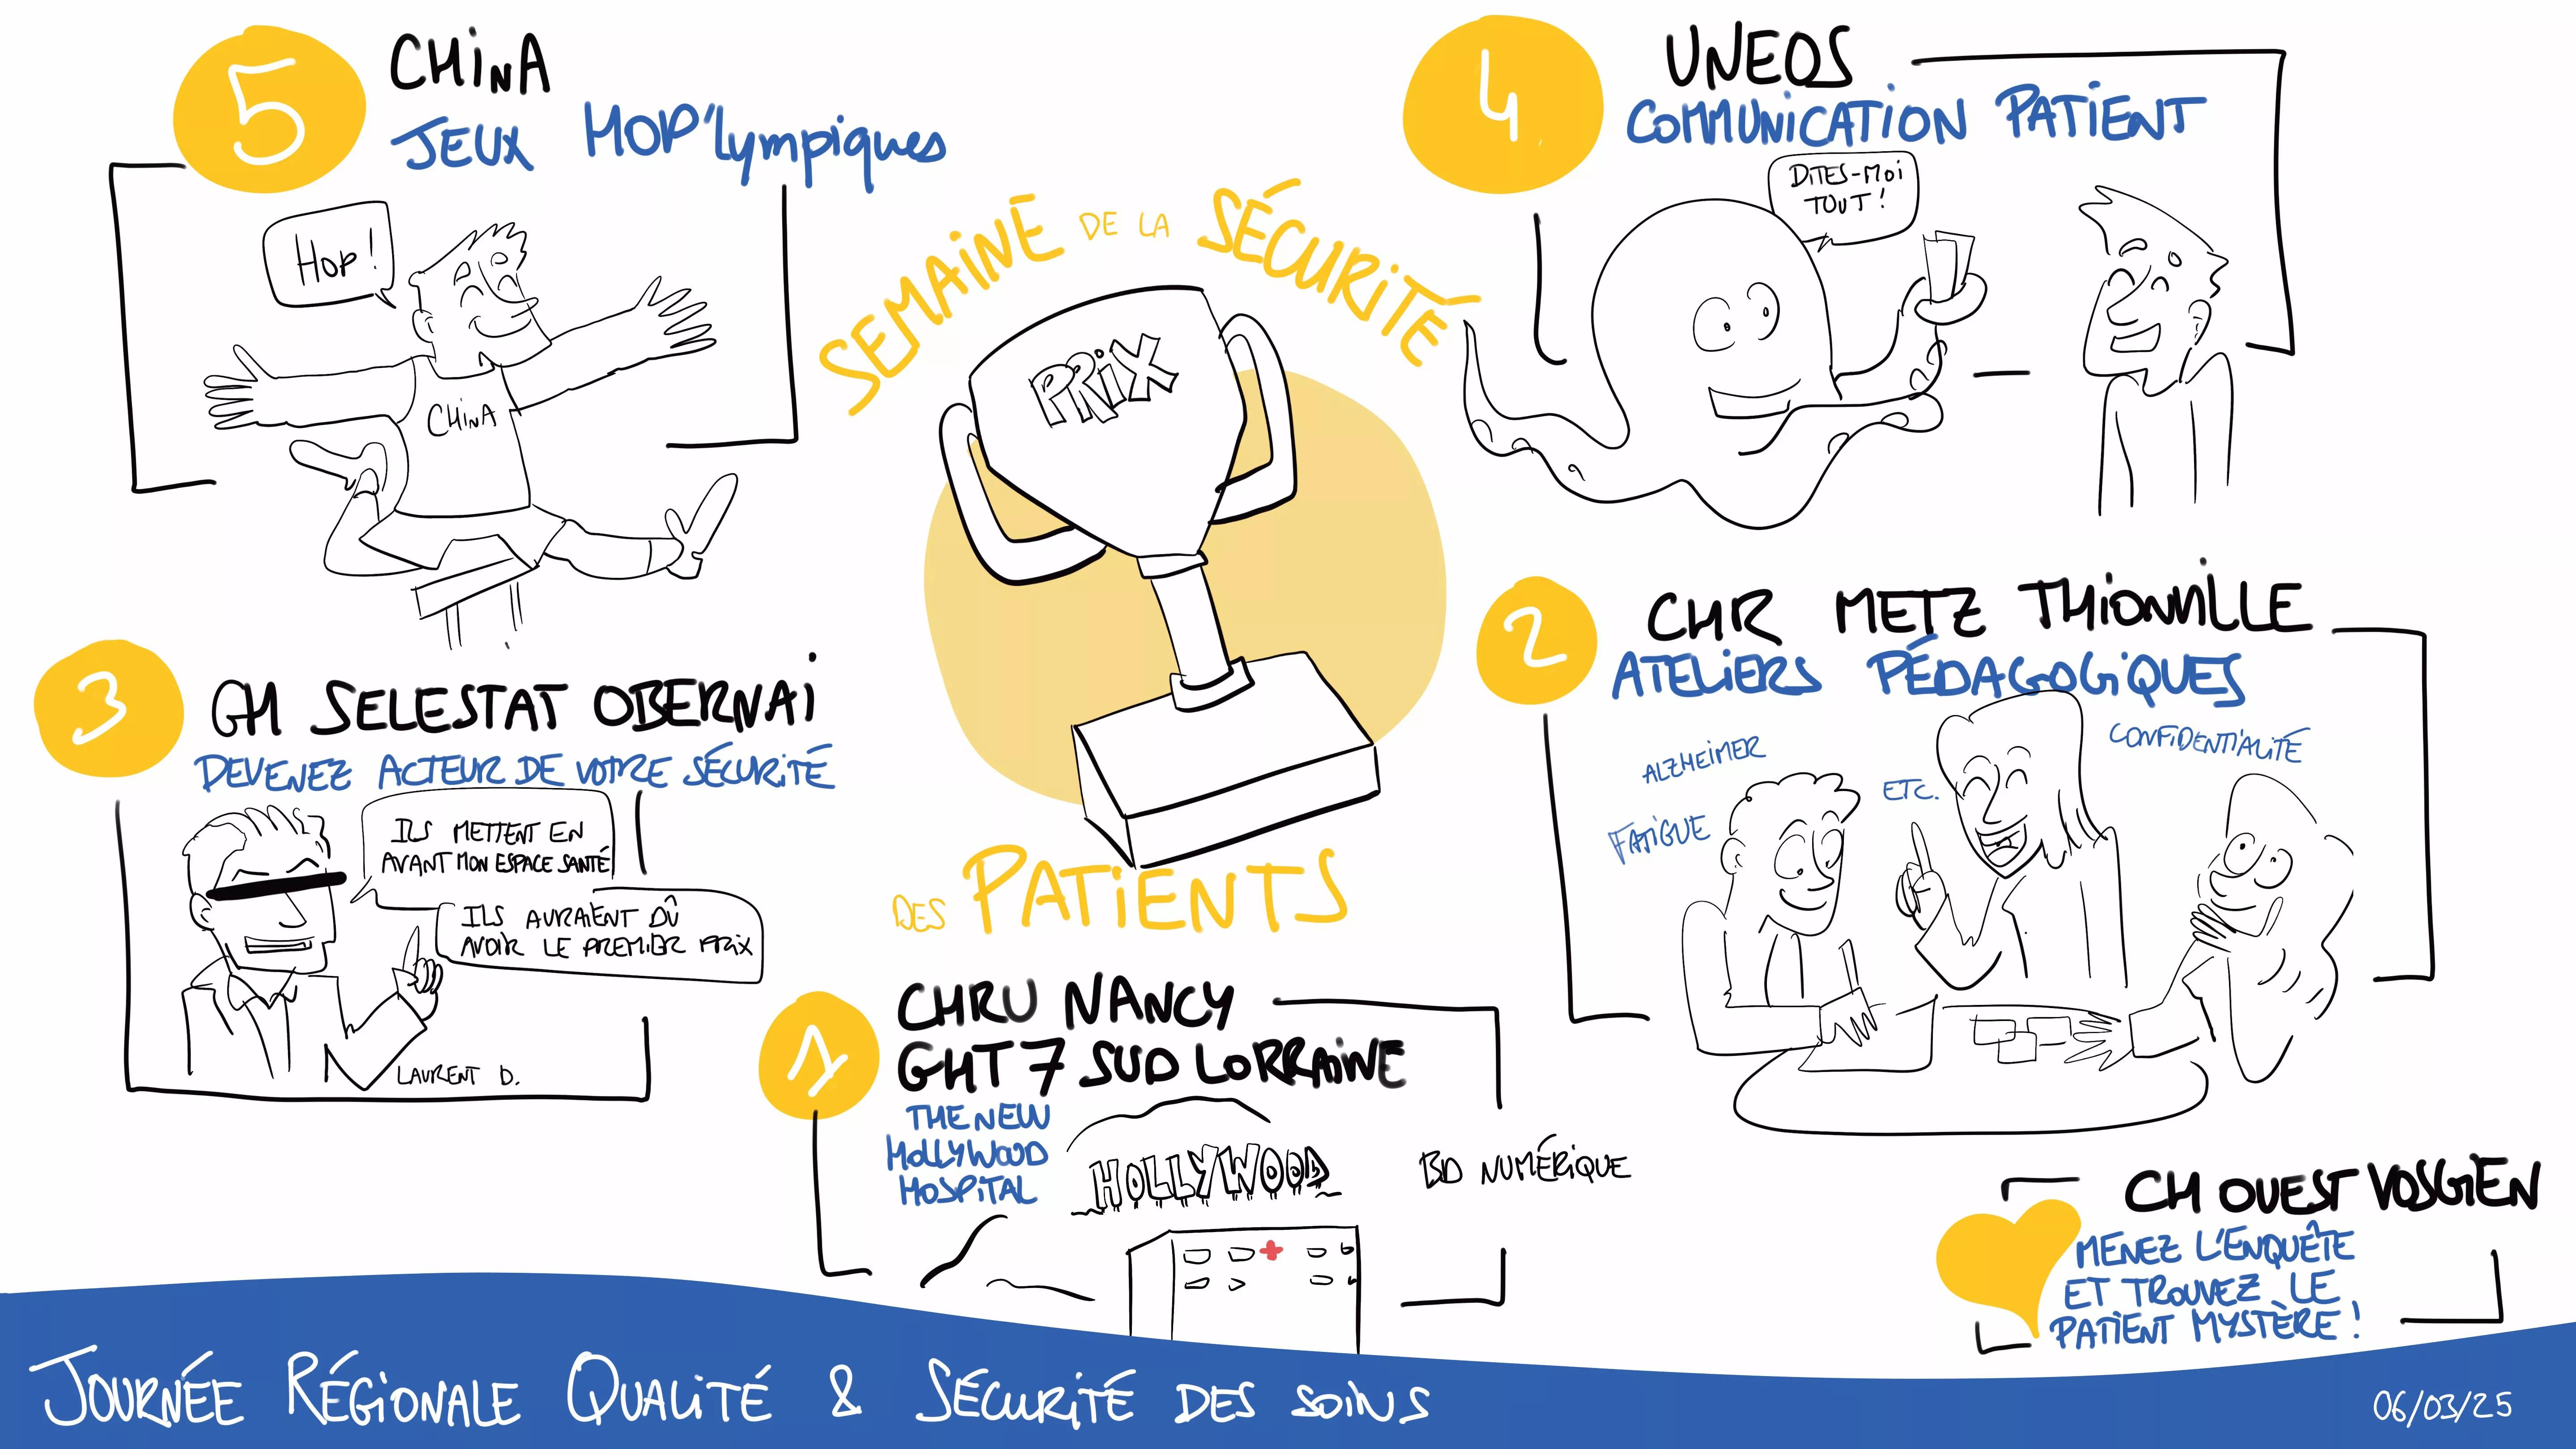 5
CHINA
JEUX HOP'Lympiques
HOP !
CHINA
4
UNEOS
COMMUNICATION PATIENT
DITES-MOI
TOUT !
SEMAINE DE LA SÉCURITÉ
PRIX
DES PATIENTS
3
GH SELESTAT OBERNAI
DEVENEZ ACTEUR DE VOTRE SÉCURITÉ
ILS METTENT EN
AVANT MON ESPACE SANTÉ
ILS AURAIENT DÛ
AVOIR LE PREMIER PRIX
LAURENT D.
2
CHR METZ THIONVILLE
ATELIERS PÉDAGOGIQUES
ALZHEIMER
CONFIDENTIALITÉ
ETC.
FATIGUE
1
CHRU NANCY
GHT 7 SUD LORRAINE
THE NEW
HOLLYWOOD
HOSPITAL
HOLLYWOOD
BD NUMÉRIQUE
CH OUEST VOSGIEN
MENEZ L'ENQUÊTE
ET TROUVEZ LE
PATIENT MYSTÈRE !
JOURNÉE RÉGIONALE QUALITÉ & SÉCURITÉ DES SOINS
06/03/25